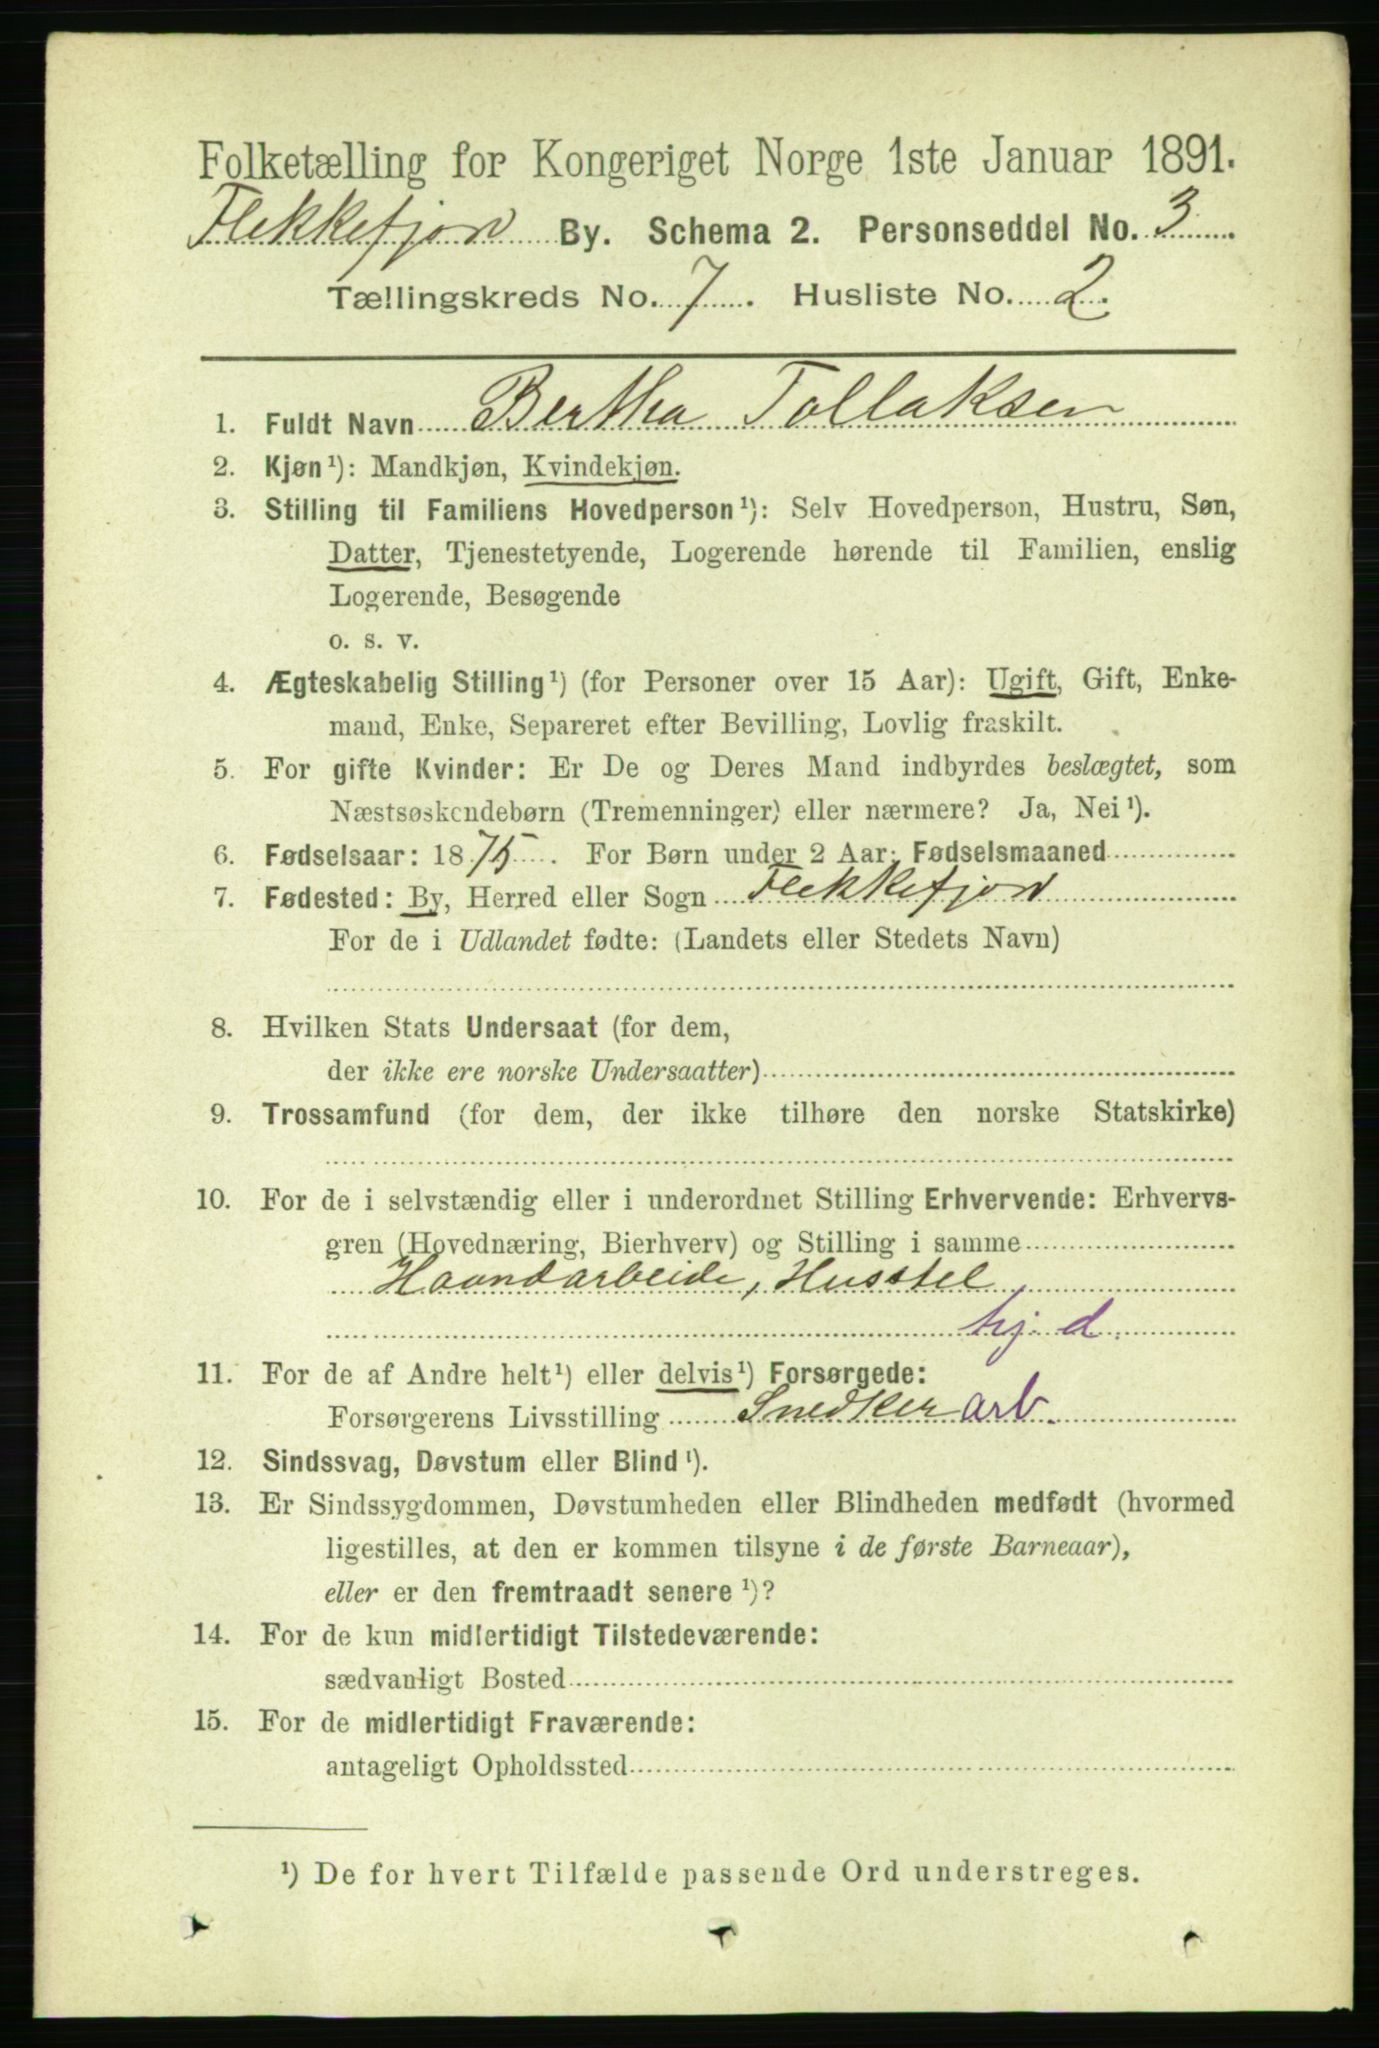 Folketælling for Kongeriget Norge 1ste Januar 1891.
Flekkefjord By. Schema 2. Personseddel No. 3
Tællingskreds No. 7. Husliste No. 2.
1. Fuldt Navn Bertha Tollaksen
2. Kjøn¹): Mandkjøn, Kvindekjøn.
3. Stilling til Familiens Hovedperson¹): Selv Hovedperson, Hustru, Søn,
Datter, Tjenestetyende, Logerende hørende til Familien, enslig
Logerende, Besøgende
o. s. v.
4. Ægteskabelig Stilling¹) (for Personer over 15 Aar): Ugift, Gift, Enke-
mand, Enke, Separeret efter Bevilling, Lovlig fraskilt.
5. For gifte Kvinder: Er De og Deres Mand indbyrdes beslægtet, som
Næstsøskendebørn (Tremenninger) eller nærmere? Ja, Nei¹).
6. Fødselsaar: 1875. For Børn under 2 Aar: Fødselsmaaned
7. Fødested: By, Herred eller Sogn Flekkefjord
For de i Udlandet fødte: (Landets eller Stedets Navn)
8. Hvilken Stats Undersaat (for dem,
der ikke ere norske Undersaatter)
9. Trossamfund (for dem, der ikke tilhøre den norske Statskirke)
10. For de i selvstændig eller i underordnet Stilling Erhvervende: Erhvervs-
gren (Hovednæring, Bierhverv) og Stilling i samme
Haandarbeide, Husstel
hj. d.
11. For de af Andre helt¹) eller delvis¹) Forsørgede:
Forsørgerens Livsstilling Snedker arb.
12. Sindssvag, Døvstum eller Blind¹).
13. Er Sindssygdommen, Døvstumheden eller Blindheden medfødt (hvormed
ligestilles, at den er kommen tilsyne i de første Barneaar),
eller er den fremtraadt senere¹)?
14. For de kun midlertidigt Tilstedeværende:
sædvanligt Bosted
15. For de midlertidigt Fraværende:
antageligt Opholdssted
¹) De for hvert Tilfælde passende Ord understreges.